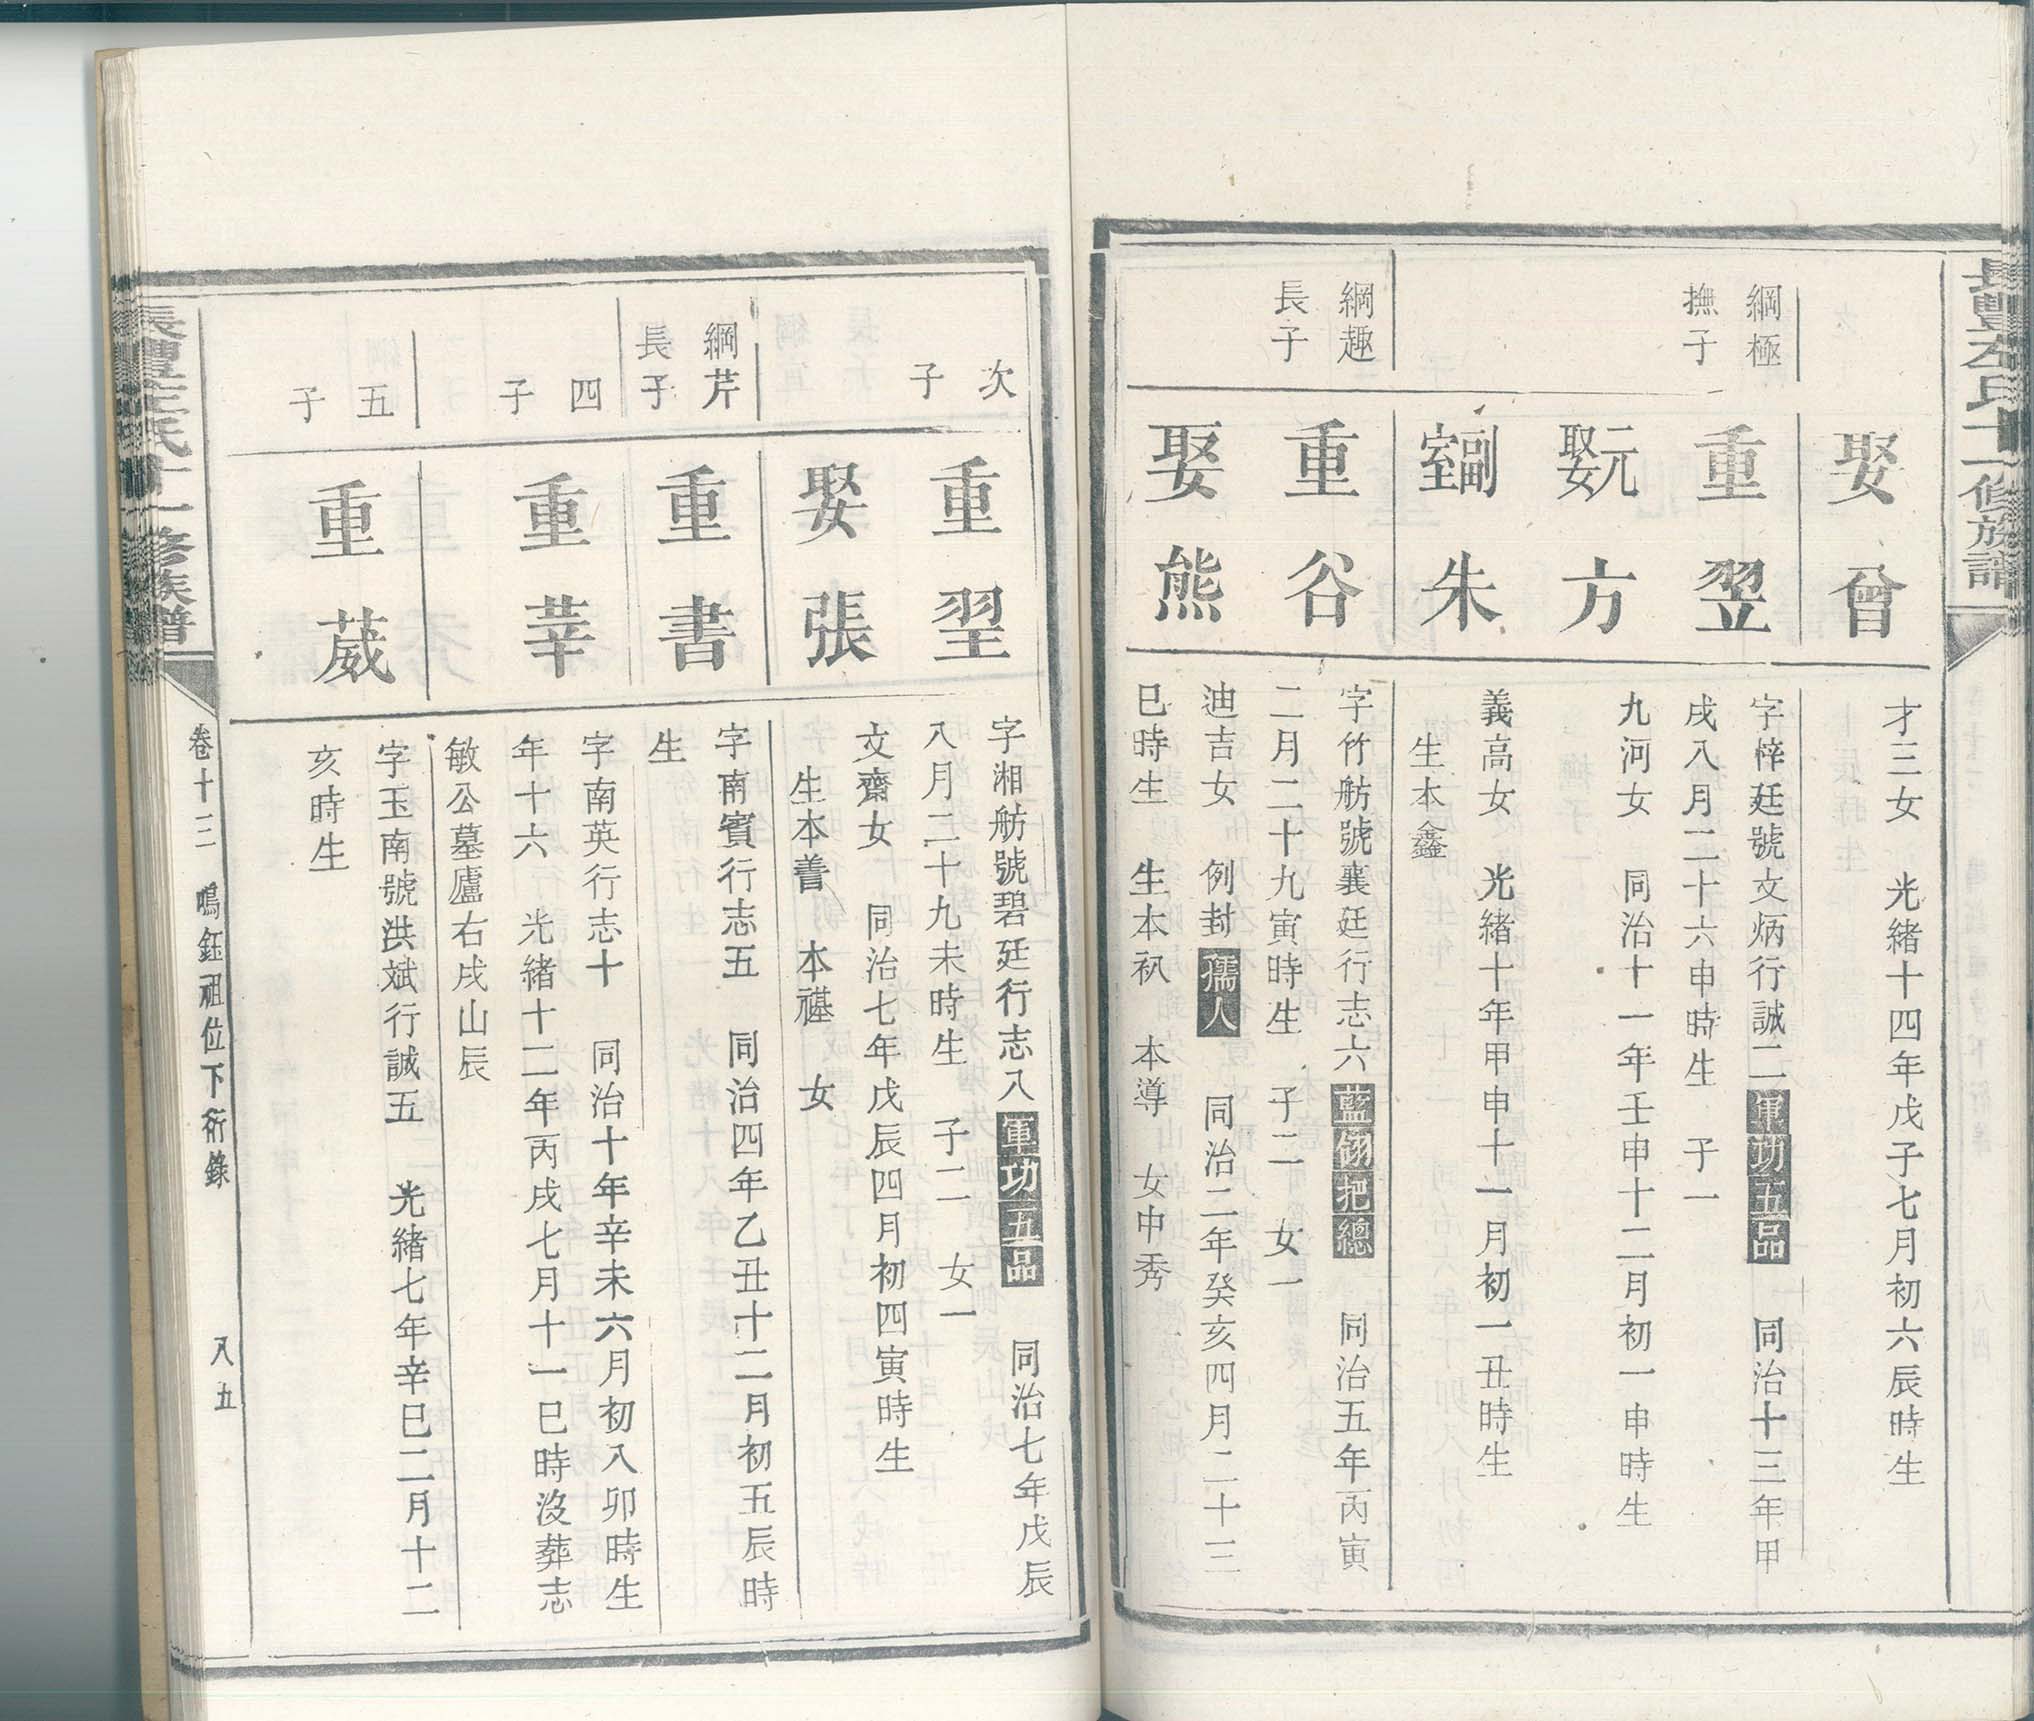 長豐左氏十一修族譜
娶曾
才三女 光緒十四年戊子七月初六辰時生
綱極
撫子
重翌
字梓廷號文炳行誠二 軍功五品 同治十三年甲
戌八月二十六申時生 子一
元娶方
九河女 同治十一年壬申十二月初一申時生
副室朱
義高女 光緒十年甲申十一月初一丑時生
生本鑫
綱趣
長子
重谷
字竹舫號襄廷行志六 藍翎把總 同治五年丙寅
二月二十九寅時生 子二 女一
娶熊
迪吉女 例封孺人 同治二年癸亥四月二十三
巳時生 生本礽 本導 女中秀
次
子
重翌
字湘舫號碧廷行志八 軍功五品 同治七年戊辰
八月二十九未時生 子二 女一
娶張
文齋女 同治七年戊辰四月初四寅時生
生本善 本禥 女
綱芹
長子
重書
字南賓行志五 同治四年乙丑十二月初五辰時
生
四
子
重莘
字南英行志十 同治十年辛未六月初八卯時生
年十六 光緒十二年丙戌七月十一巳時沒葬志
敏公墓廬右戌山辰
五
子
重葳
字玉南號洪斌行誠五 光緒七年辛巳二月十二
亥時生
長豐左氏十一修族譜
卷十三 鳴鈺祖位下衍錄 八五